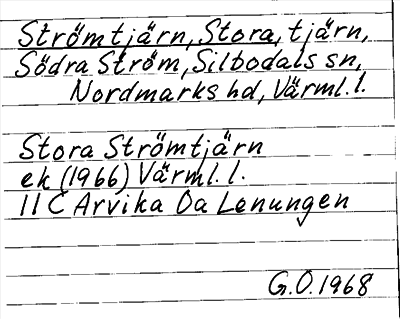 Strömtjärn, Stora, tjärn,
Södra Ström, Silbodals sn,
Nordmarks hd, Värml. l.
Stora Strömtjärn
ek (1966) Värml. l.
11 C Arvika 0a Lenungen
G.O. 1968